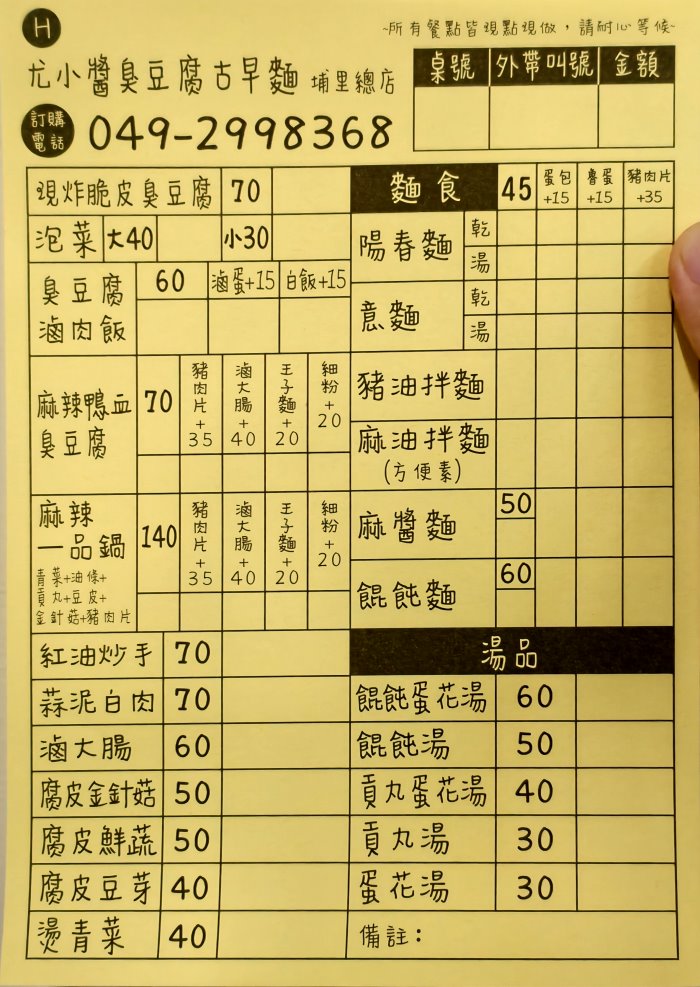 H
~所有餐點皆現點現做，請耐心等候~
尤小醬臭豆腐古早麵 埔里總店
訂購電話 049-2998368
桌號 外帶叫號 金額
現炸脆皮臭豆腐 70
泡菜 大40 小30
臭豆腐滷肉飯 60 滷蛋+15 白飯+15
麻辣鴨血臭豆腐 70 豬肉片+35 滷大腸+40 王子麵+20 細粉+20
麻辣一品鍋 140 豬肉片+35 滷大腸+40 王子麵+20 細粉+20
青菜+油條+
貢丸+豆皮+
金針菇+豬肉片
紅油炒手 70
蒜泥白肉 70
滷大腸 60
腐皮金針菇 50
腐皮鮮蔬 50
腐皮豆芽 40
燙青菜 40
麵食 45 蛋包+15 魯蛋+15 豬肉片+35
陽春麵 乾 湯
意麵 乾 湯
豬油拌麵
麻油拌麵
(方便素)
麻醬麵 50
餛飩麵 60
湯品
餛飩蛋花湯 60
餛飩湯 50
貢丸蛋花湯 40
貢丸湯 30
蛋花湯 30
備註：